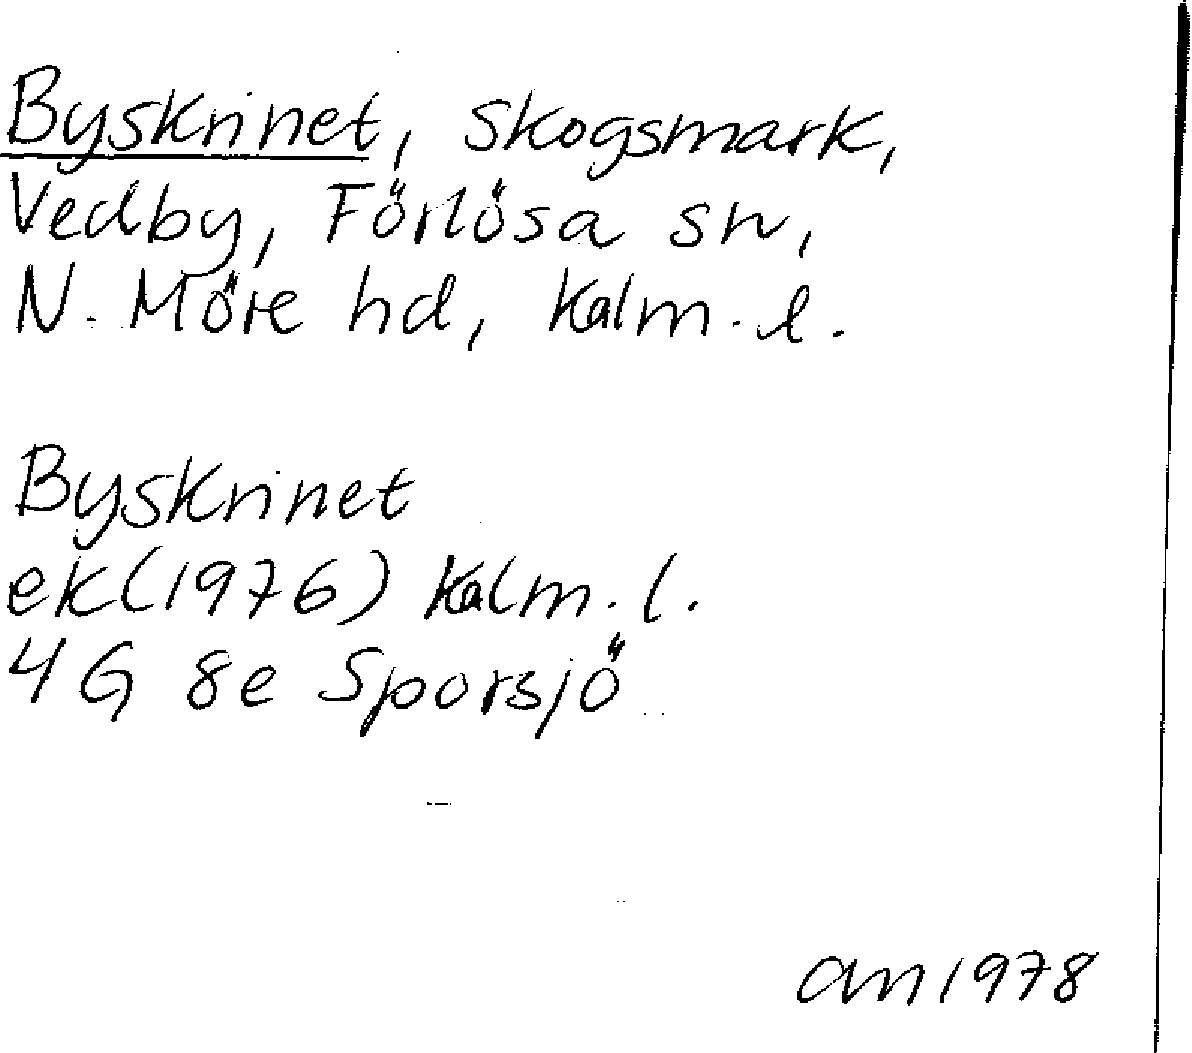 Byskrinet, skogsmark,
Vedby, Förlösa sn,
N. Möre hd, Kalm. l.
Byskrinet
ek (1976) Kalm. l.
4G 8e Sporsjö
am 1978